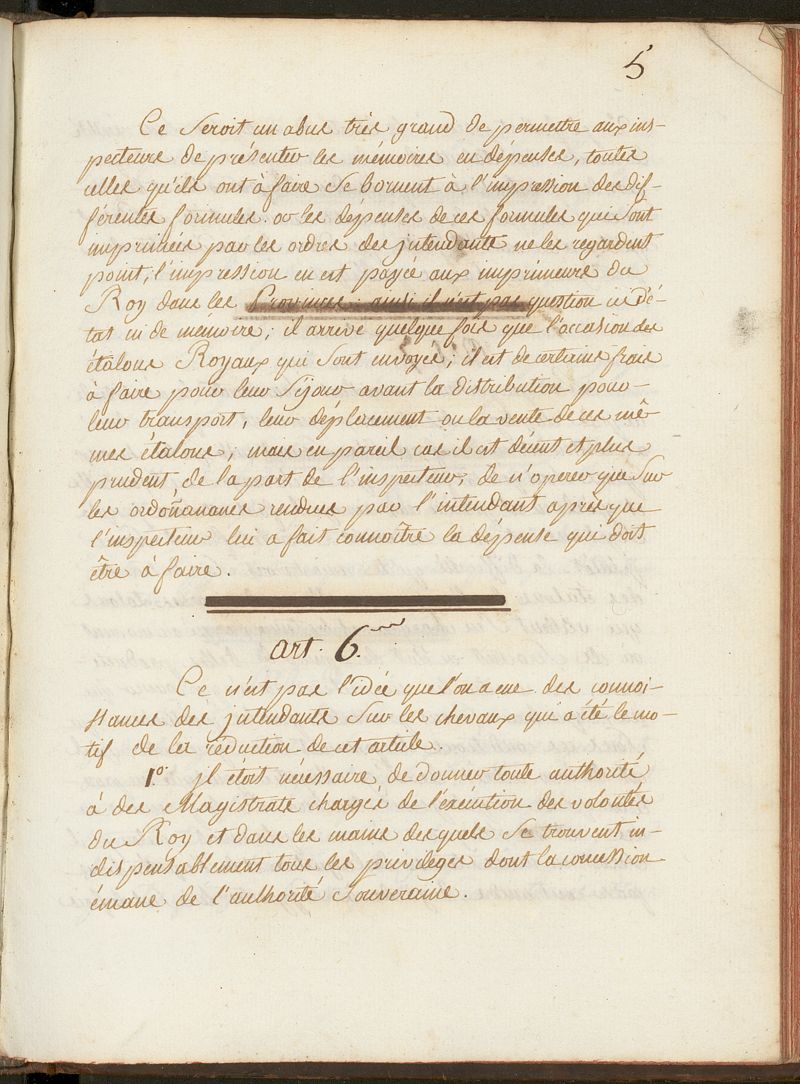 5
Ce seroit un abus très grand de permettre aux ins-
pecteurs de présenter les mémoires en dépenses, toutes
celles qu'ils ont à faire se bornent à l'impression des dif-
férentes formules. or les dépenses de ces formules qui sont
imprimées par les ordres des jntendants ne les regardent
point, l'impression en est payée aux imprimeurs du
Roy dans les Provinces; ainsi il n'est pas question ni d'é-
tat ni de mémoire; il arrive quelque fois que l'occasion des
étalons Royaux qui sont envoyés; il est de certains frais
à faire pour leur séjour avant la distribution pour
leur transport, leur déplacement ou la vente de ces mê-
mes étalons, mais en pareil cas il est décent et plus
prudent de la part de l'inspecteur, de n'operer que sur
les ordoñnances rendues par l'intendant après que
l'inspecteur lui a fait connoître la dépense qui doit
être à faire.
art. 6.
Ce n'est pas l'idée que l'on a eue des connoi-
ssances des jntendants sur les chevaux qui a été le mo-
tif de la rédaction de cet article.
1.º jl étoit nécessaire de donner toute authorité
à des Magistrats chargés de l'exécution des volontés
du Roy et dans les mains desquels se trouvent in-
dispensablement tous les privilèges dont la concession
émane de l'authorité souveraine.